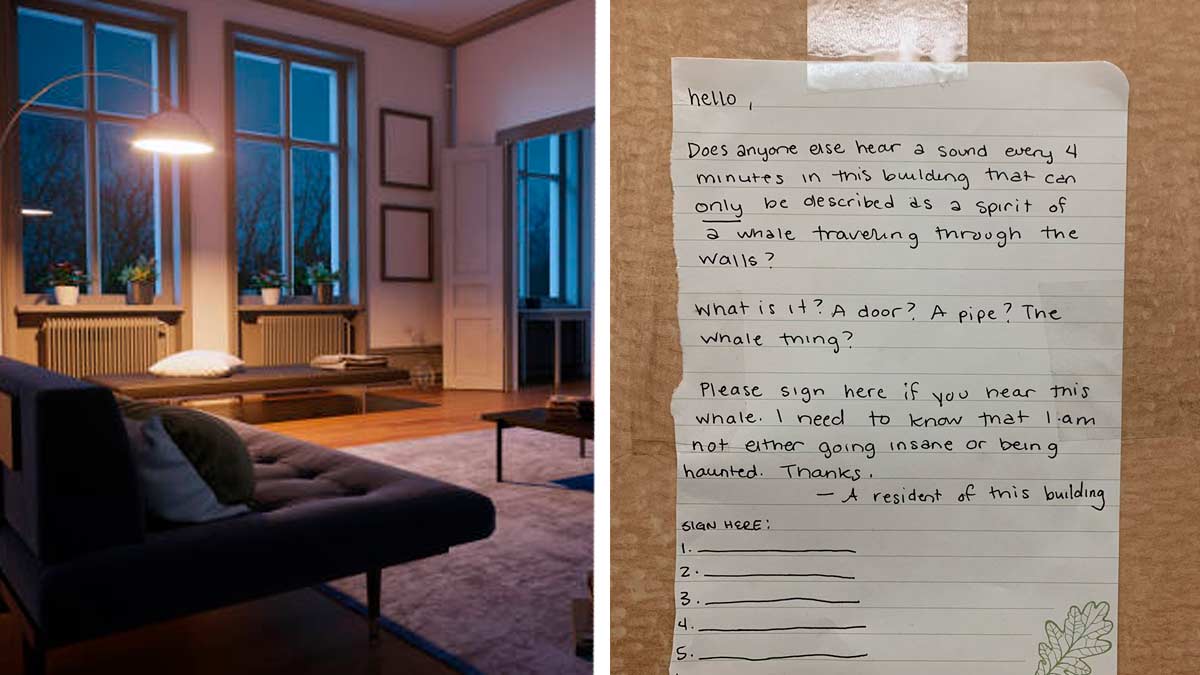 hello,
Does anyone else hear a sound every 4
minutes in this building that can
only be described as a spirit of
a whale traveling through the
walls?
What is it? A door? A pipe? The
whale thing?
Please sign here if you hear this
whale. I need to know that I am
not either going insane or being
haunted. Thanks.
— A resident of this building
SIGN HERE:
1.
2.
3.
4.
5.